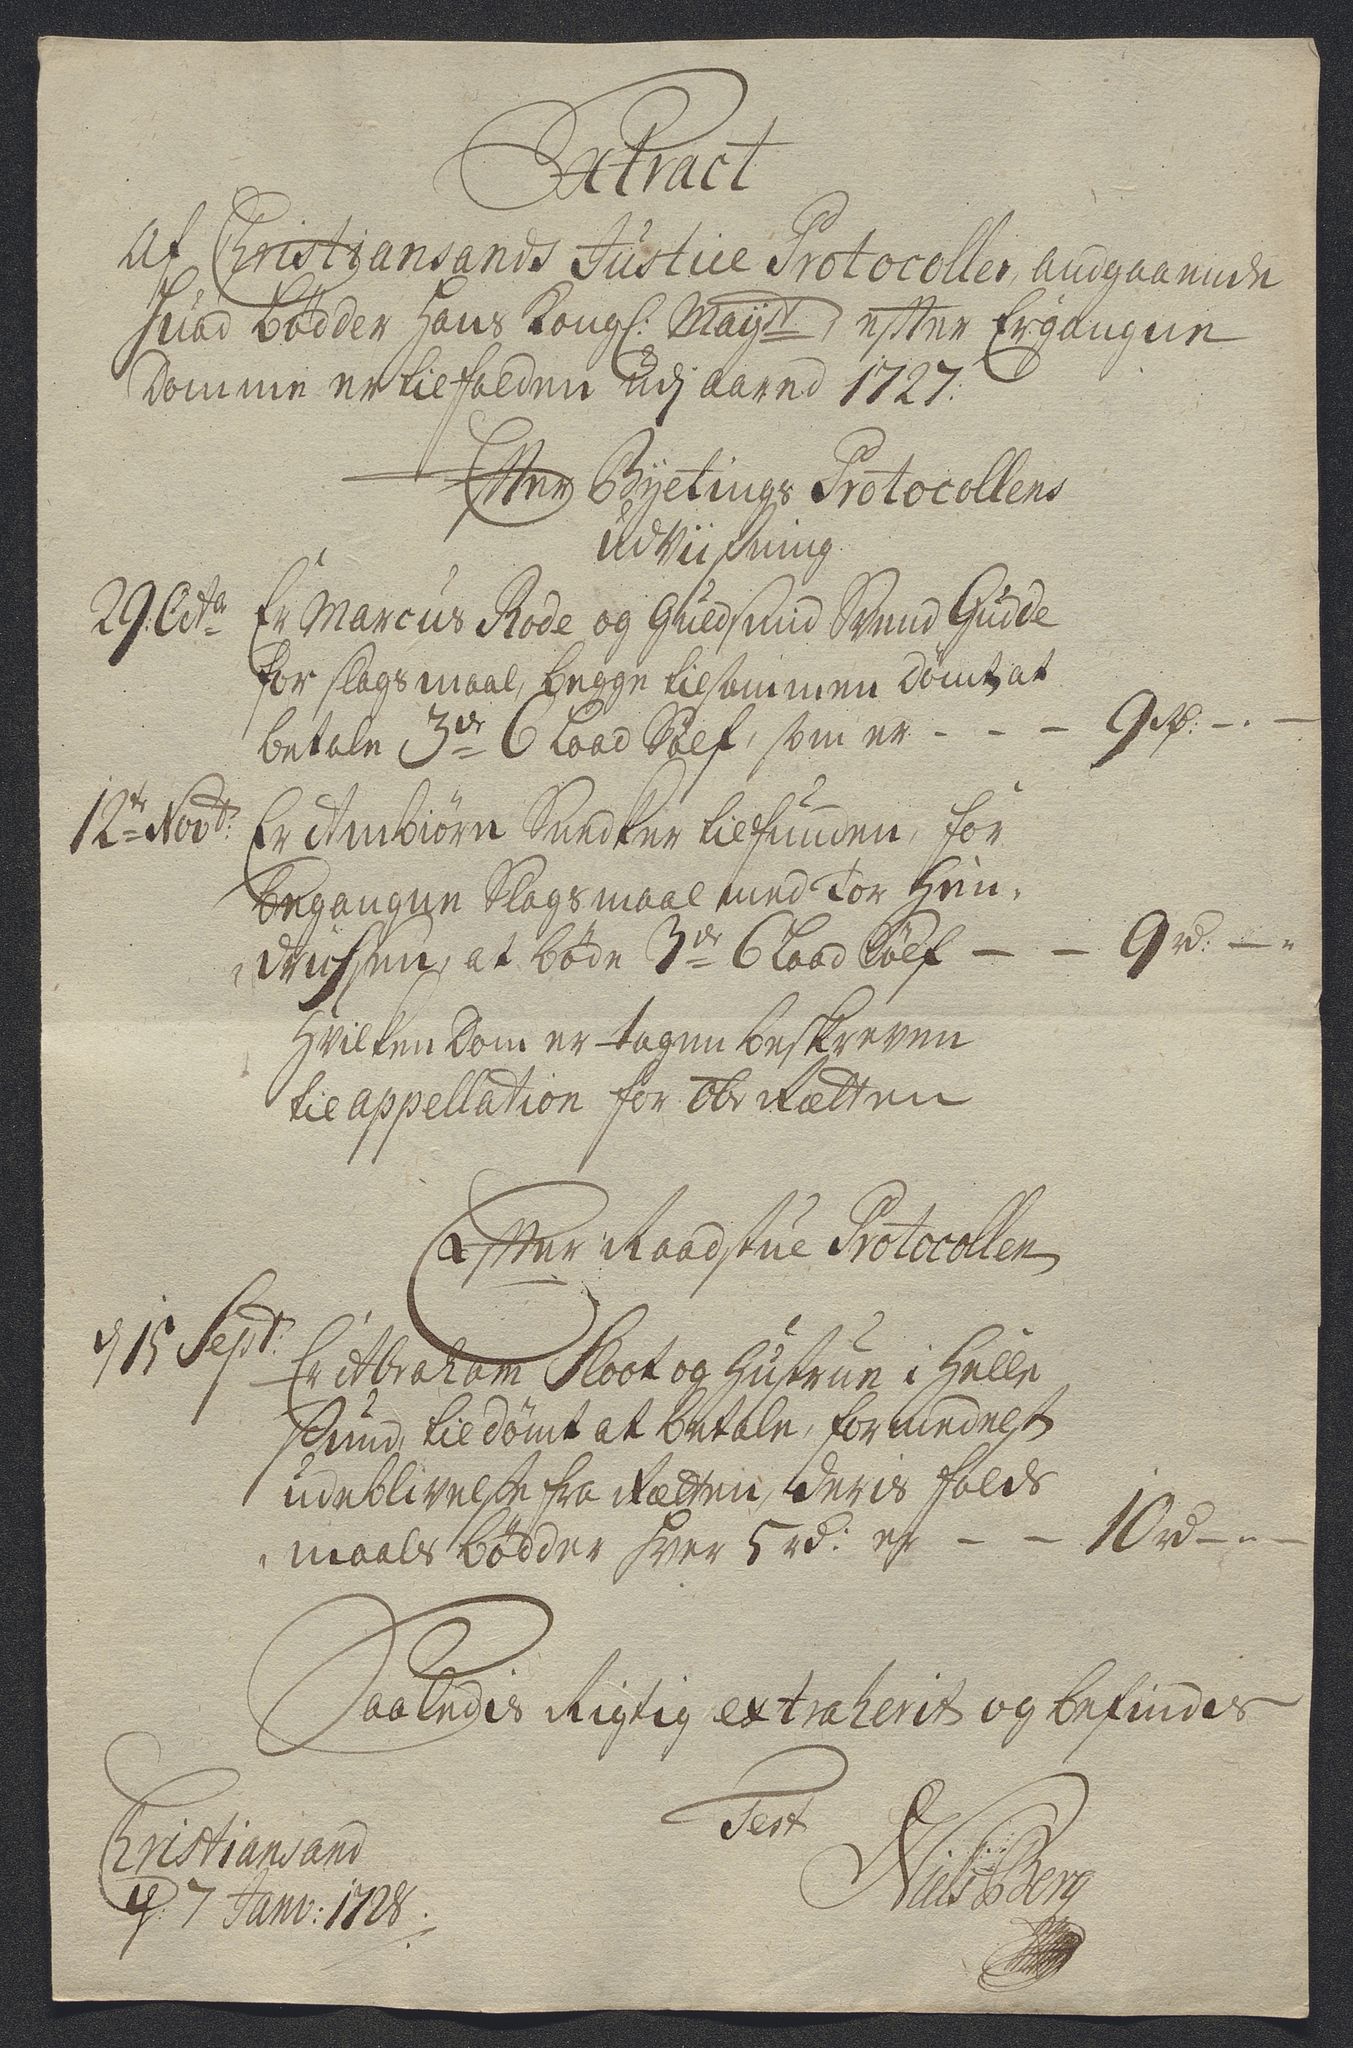 Extract
Af Christiansands Justice Protocoller, andgaaende
hvad bødder Hans Kongl: Mayst efter Ergangne
Domme er tilfalden udj aared 1727:
Efter Byetings Protocollens
Udviisning
29: Octr Er Marcus Rode og Guldsmid Svend Gudde
for slagsmaal, begge tilsammen dømt at
betale 3de 6 Laad Sølf, som er - - - 9 rd: -.-
12te Novbr: Er Anbiørn Snedker tilfunden, for
begangne Slagsmaal med Tor Hen,
drichsen, at bøde 3de 6 Laad Sølf - - 9 rd: - -
Hvilken Dom er tagen beskreven
til appellation for Ob: Rætten
Efter Raadstue Protocollen
d 15 Sept: Er Abraham Sloot og Hustrue i Helle
Sund, tildømt at betale, formedelst
udeblivelse fra Rætten, deris falds
maals bødder hver 5 rd: er - - 10 rd - - -
Saaledis Rigtig extraherit og befindis
Test
Christiansand
d: 7 Janv: 1728.
Niels Berg